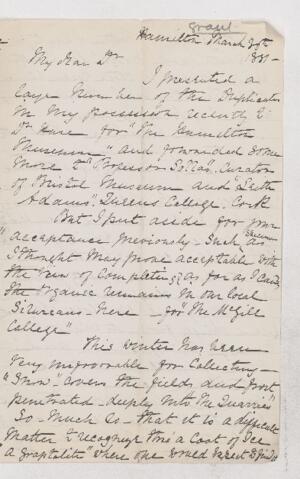 grant
Hamilton March 29th
1881-
My Dear Dr
I presented a
large Number of the Duplicates
in My possession recently to
Dr for "The Hamilton
Museum" and forwarded some
More to Professor Sollas, Curator
of Bristol Museum and Leith
Adams, Queens College, Cork
But I put aside for your
acceptance previously - Such as
I thought May prove acceptable with
the View of Completing as far as I can
The Organic remains in our local
Silurians - here for "The McGill
College"
This Winter has been
Very unfavorable for Collecting -
"Snow" covers the fields and frost
penetrated deeply into the Quarries
So - Much So - that it is a difficult
Matter to recognize thro' a Coat of Ice
a graptolite" where one would expect to find